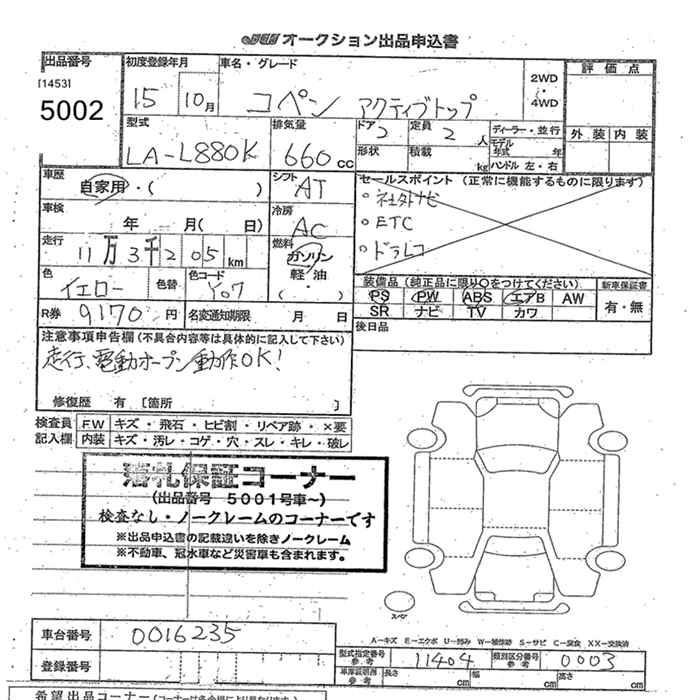 JU オークション出品申込書
出品番号 初度登録年月 車名・グレード 評価点
[1453] 15 10月 コペン アクティブトップ 2WD・4WD
5002
型式 排気量 ドア 2 定員 2人 ディーラー・並行 外装 内装
LA-L880K 660cc 形状 積載 kg モデル年式 年 ハンドル 左・右
車歴 シフト セールスポイント (正常に機能するものに限ります)
自家用・( ) AT 。社外ナビ
車検 年 月( 日) 冷房 AC 。ETC
走行 11万3千205km 燃料 ガソリン 。ドラレコ
軽油・( )
色 イエロー 色替 色コード Y07 装備品 (純正品に限り○をつけてください) 新車保証書
PS PW ABS エアB AW 有・無
R券 9170円 名変通知期限 月 日 SR ナビ TV カワ
注意事項申告欄 (不具合内容等は具体的に記入して下さい) 後日品
走行、電動オープン動作OK!
修復歴 有 [箇所 ]
検査員記入欄 FW キズ・飛石・ヒビ割・リペア跡・×要
内装 キズ・汚レ・コゲ・穴・スレ・キレ・破レ
落札保証コーナー
(出品番号 5001号車〜)
検査なし・ノークレームのコーナーです
※出品申込書の記載違いを除きノークレーム
※不動車、冠水車など災害車も含まれます。
スペア
A-キズ E-エクボ U-凹み W-補修跡 S-サビ C-腐食 XX-交換済
車台番号 0016235
型式指定番号 参考 11404 類別区分番号 参考 0003
登録番号 車庫証明用 参考 長さ cm 幅 cm 高さ cm
希望出品コーナー